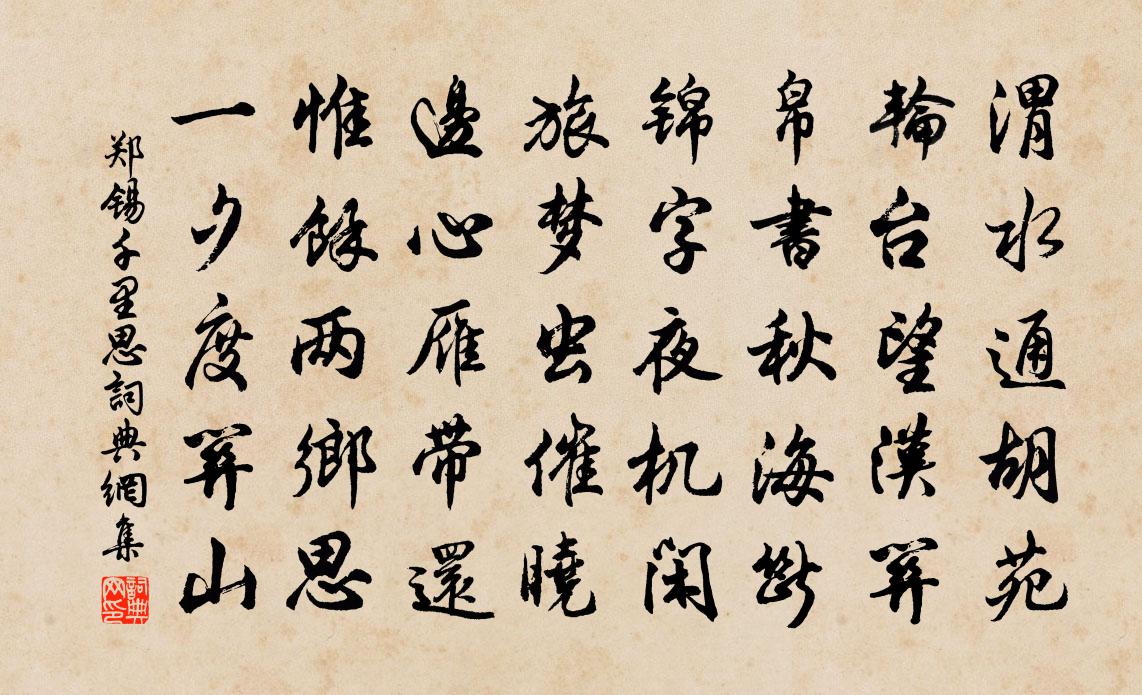 渭水通胡苑
輪台望漢關
帛書秋海斷
錦字夜机閑
旅梦虫催曉
邊心雁帶還
惟餘两鄉思
一夕度關山
郑錫千里思詞典網集
詞典网印